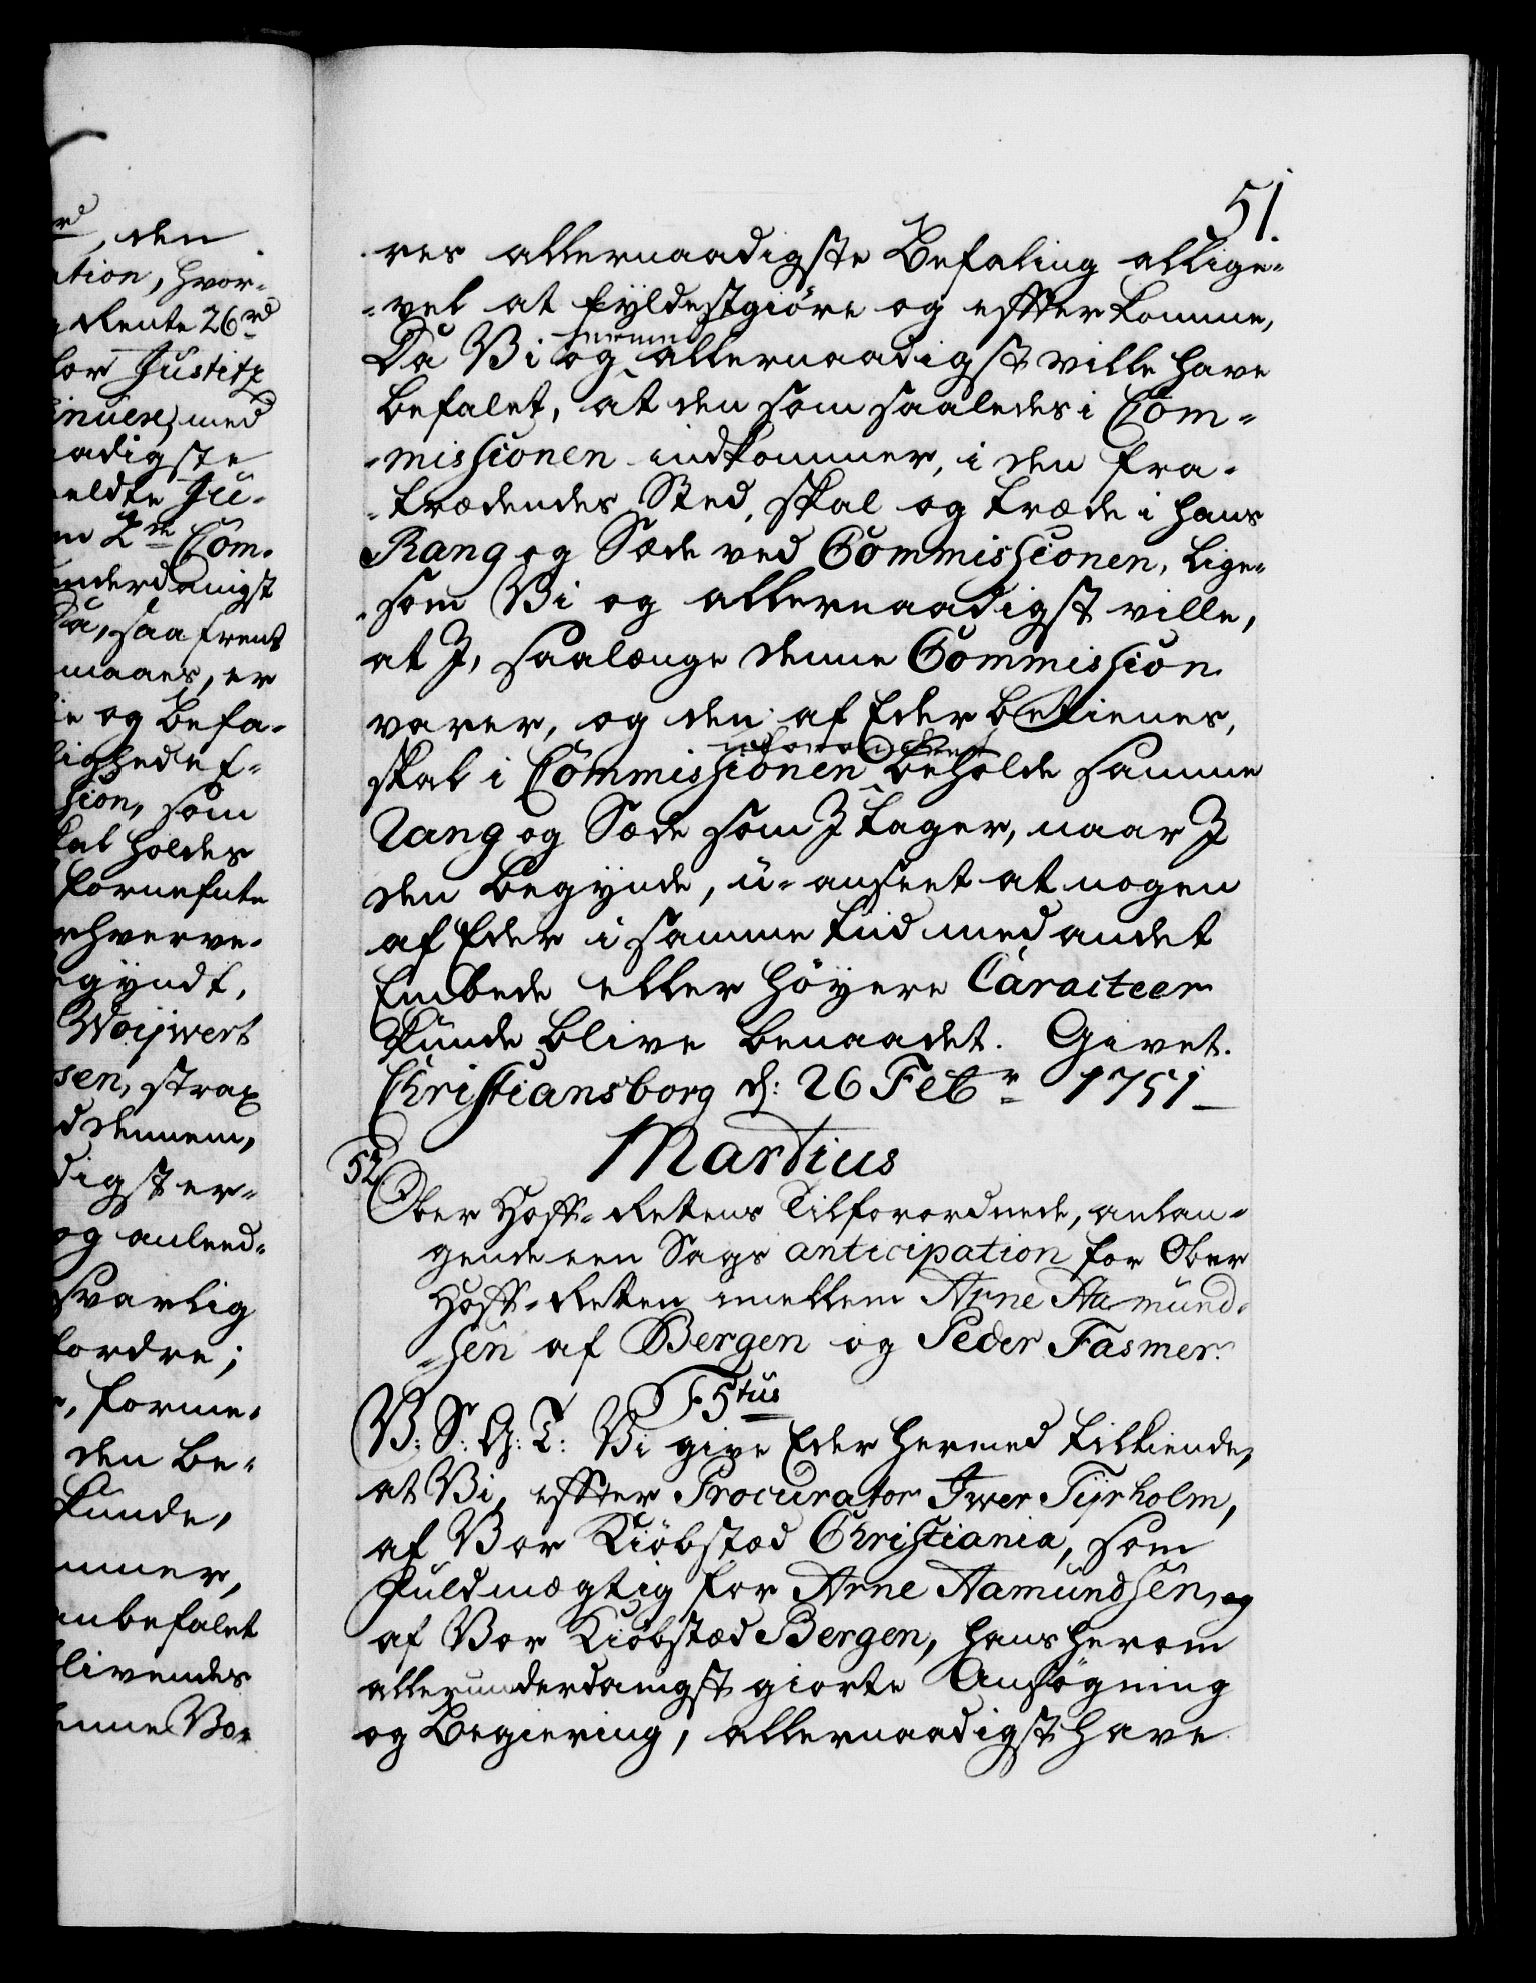 51.
res allernaadigste Befaling allige-
-vel at fyldestgiöre og effterkomme,
Da Vi og hermed allernaadigst ville have
befalet, at den som saaledes i Com-
-missionen indkommer, i den fra-
-trædendes Sted, skal og træde i hans
Rang og Sæde ved Commissionen, lige-
-som Vi og allernaadigst ville,
at I, saalænge denne Commission
varer, og den af Eder betienes,
skal i Commissionen beholde samme
Rang og Sæde som I tager, naar I
den begynde, u-anseet at nogen
af Eder i samme tiid med andet
Embede eller höyere Caracteer
kunde blive benaadet. Givet.
Christiansborg d: 26 Febr 1751
Martius
52
Ober Hoff-Rettens Tilforordnede, anlan-
gende een Sags anticipation for Ober
Hoff-Retten imellem Arne Aamund-
-sen af Bergen og Peder Fasmer.
F. 5tus
V. S. G. T: Vi give Eder hermed tilkiende,
at Vi, effter Procurator Iwer Tyrholm,
af Vor Kiöbstæd Christiania, som
Fuldmægtig for Arne Aamundsen, og
af Vor Kiöbstæd Bergen, hans herom
allerunderdanigst giorte Ansögning
og Begiering, allernaadigst have
den
ation, hvor-
Rente 26 rd
for Justitz
inuere, med
aadigste
meldte Ju-
Com-
underdanigst
Da, saa fremt
maaes, er
ie og Befa-
ligheder
sion, som
kal holdes
fornefnte
rhverve-
gyndt,
Weywert
sen, strax
d dennem,
digst er-
og anleed-
svarlig
fordre;
forme-
den be-
kunde,
mmer,
anbefalet
livendes
enne Vor